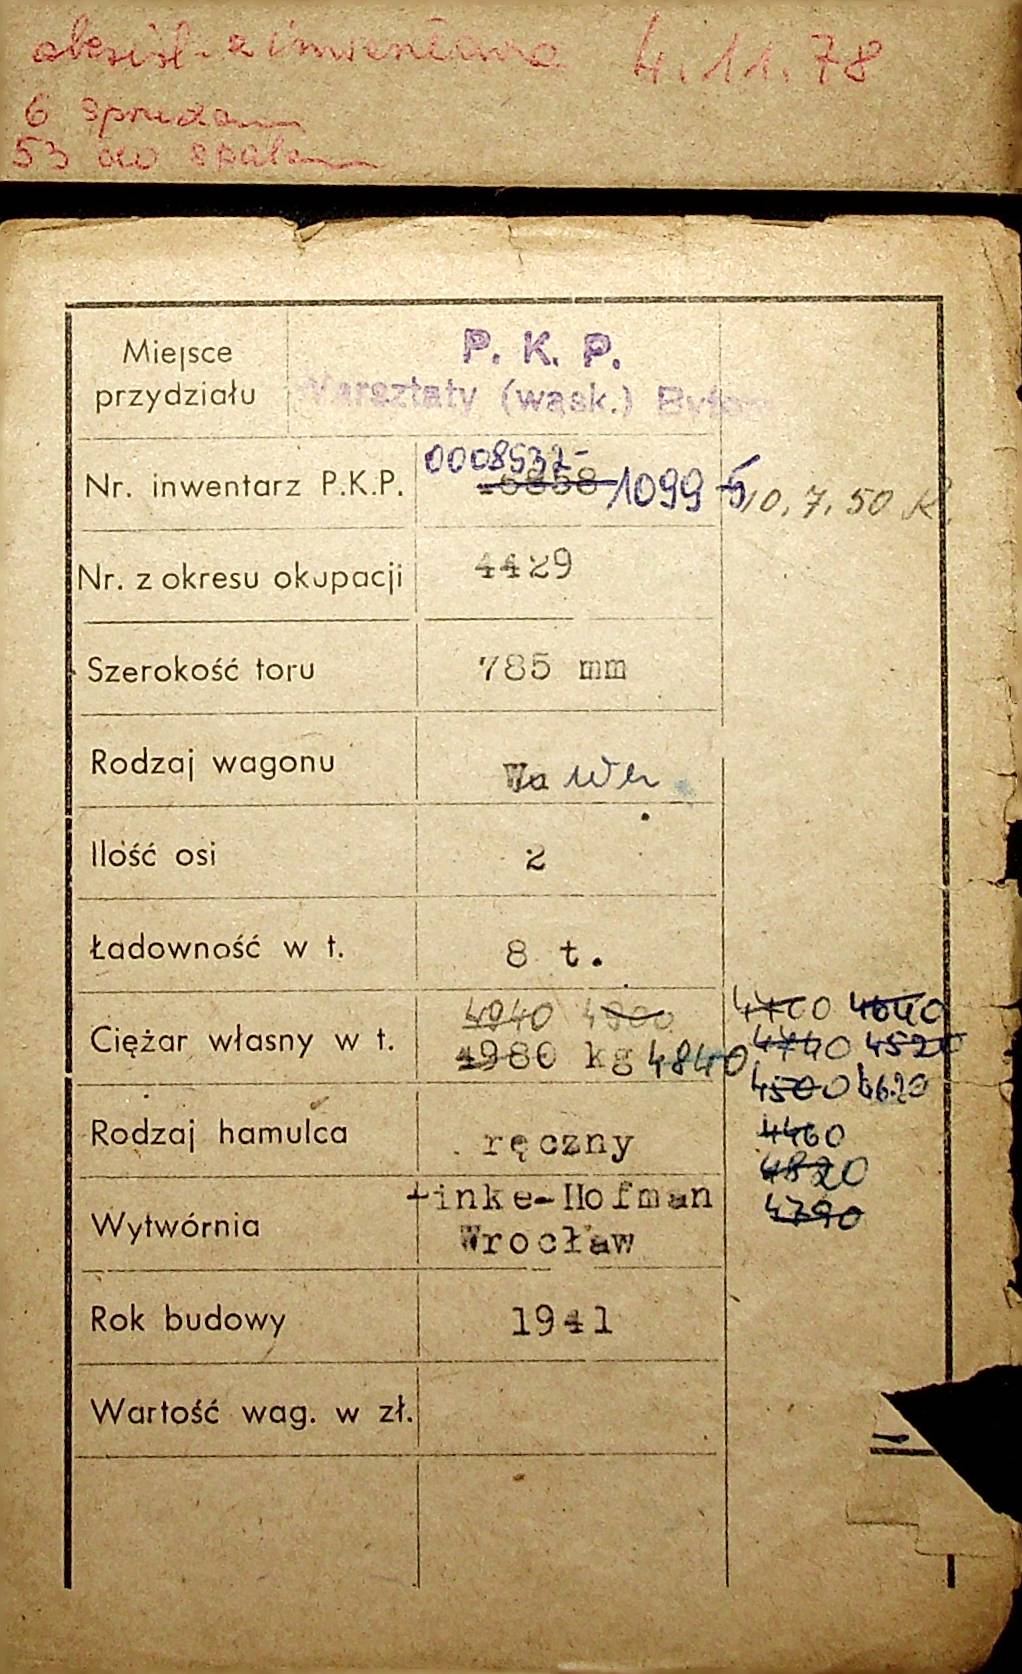 4.11.78
6
53 do
Miejsce
przydziału
P. K. P.
Warsztaty (wąsk.) Bytom
0008532-
Nr. inwentarz P.K.P. 1099 5 10.7.50
Nr. z okresu okupacji 4429
Szerokość toru 785 mm
Rodzaj wagonu
Ilość osi 2
Ładowność w t. 8 t.
4940 4900 4700 4640
Ciężar własny w t. 4980 kg 4840 4740 4520
4500 4620
Rodzaj hamulca ręczny 4460
4820
Linke-Hofman 4790
Wytwórnia
Wrocław
Rok budowy 1941
Wartość wag. w zł.